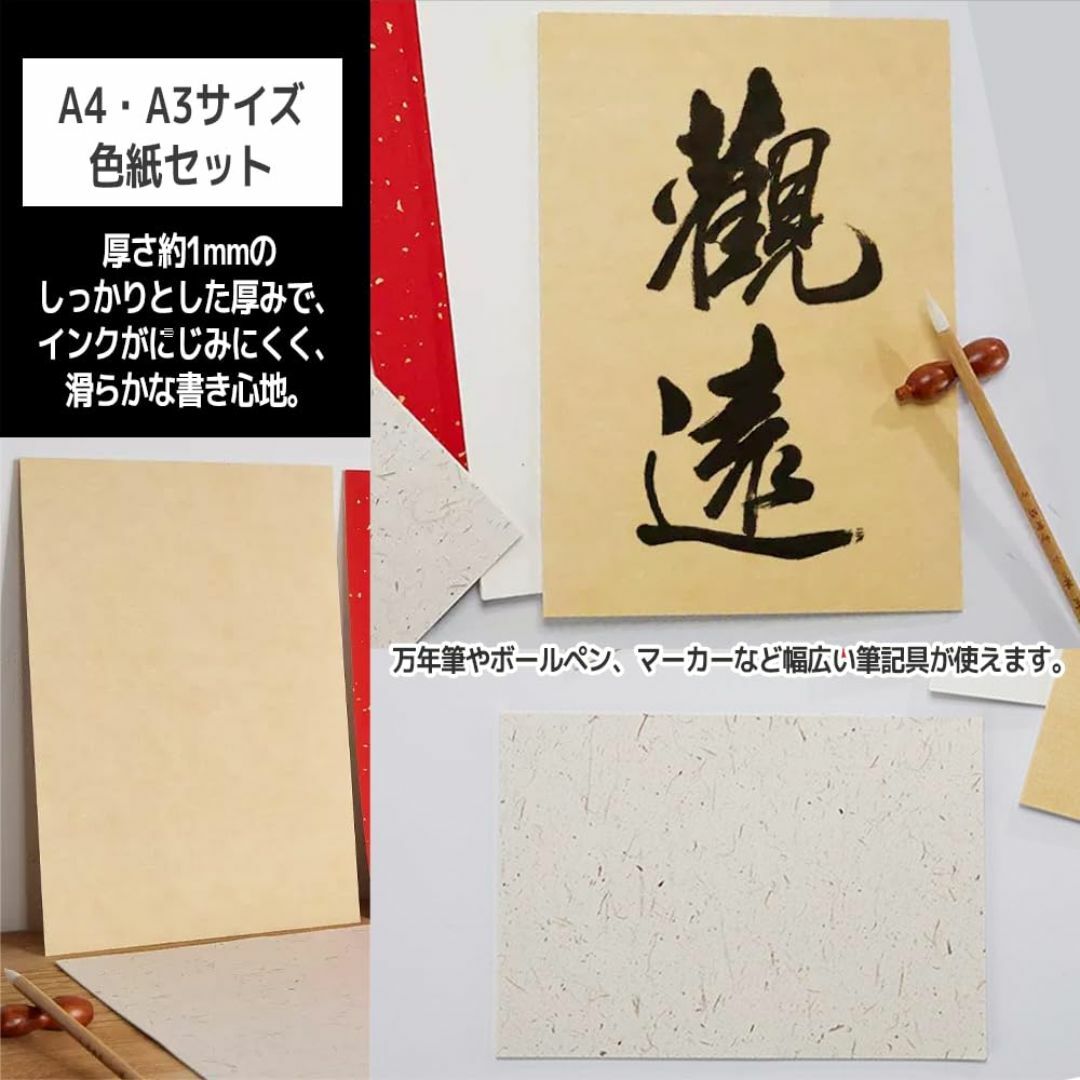 A4・A3サイズ
色紙セット
厚さ約1mmの
しっかりとした厚みで、
インクがにじみにくく、
滑らかな書き心地。
觀
遠
万年筆やボールペン、マーカーなど幅広い筆記具が使えます。